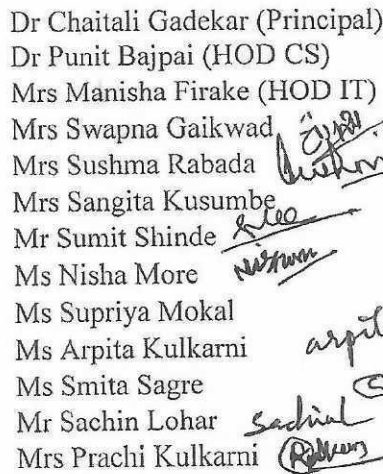 Dr Chaitali Gadekar (Principal)
Dr Punit Bajpai (HOD CS)
Mrs Manisha Firake (HOD IT)
Mrs Swapna Gaikwad
Mrs Sushma Rabada
Mrs Sangita Kusumbe
Mr Sumit Shinde
Ms Nisha More
Ms Supriya Mokal
Ms Arpita Kulkarni arpit
Ms Smita Sagre
Mr Sachin Lohar
Mrs Prachi Kulkarni